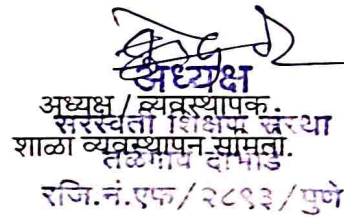 अध्यक्ष
अध्यक्ष / व्यवस्थापक.
सरस्वती शिक्षण संस्था
शाळा व्यवस्थापन समिती.
तळेगाव दाभाडे
रजि.नं.एफ/२८९३/पुणे